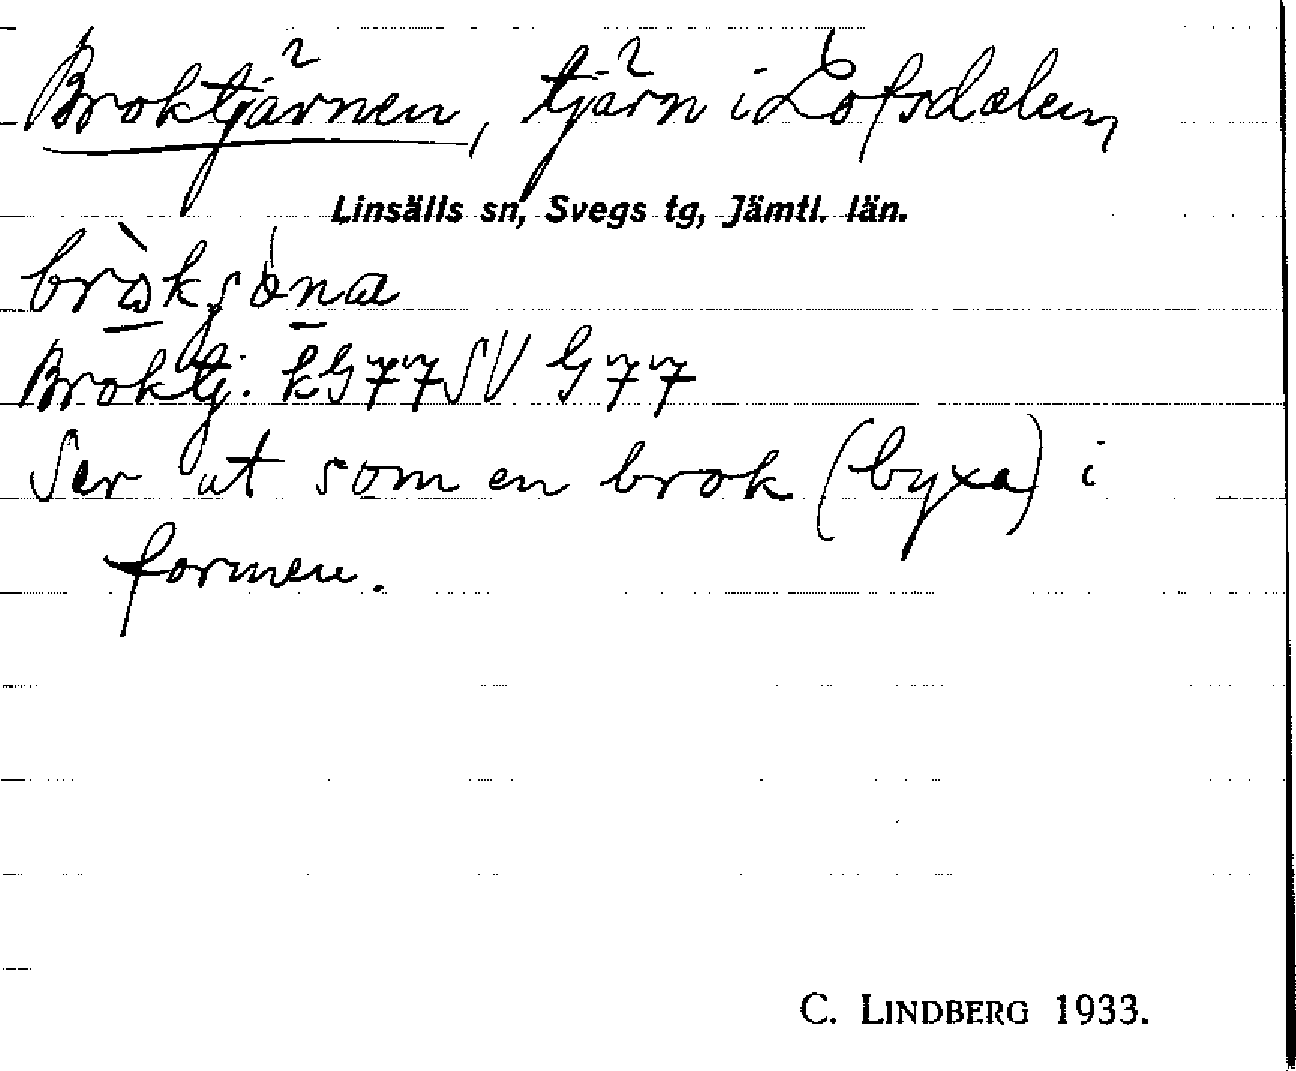 Broktjärnen, tjärn i Lofsdalen,
Linsälls sn, Svegs tg, Jämtl. län.
Broktj. kG77SV G77
Ser ut som en brok (byxa) i
formen.
C. LINDBERG 1933.